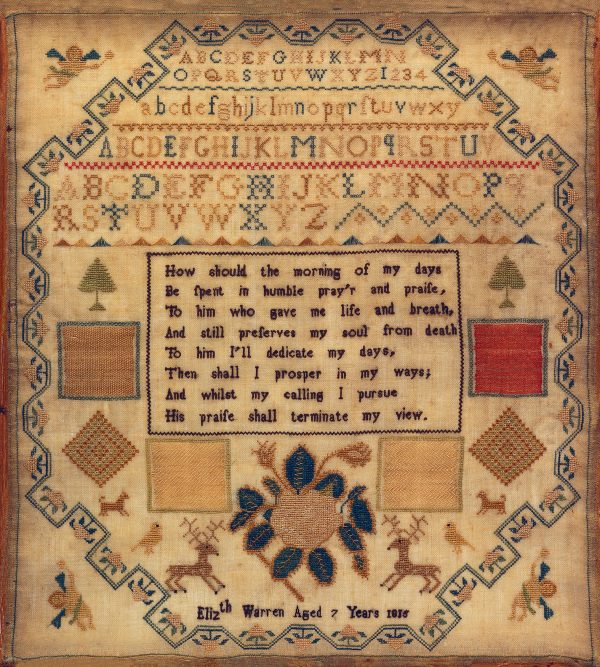 ABCDEFGHIJKLMN
OPQRSTUVWXYZ1234
abcdefghijklmnopqrſtuvwxy
ABCDEFGHIJKLMNOPqRSTUV
ABCDEFGHIJKLMNOPq
RSTUVWXYZ
How should the morning of my days
Be ſpent in humble pray'r and praiſe,
To him who gave me life and breath,
And still preſerves my soul from death
To him I'll dedicate my days,
Then shall I prosper in my ways;
And whilst my calling I pursue
His praiſe shall terminate my view.
Elizth Warren Aged 7 Years 1818